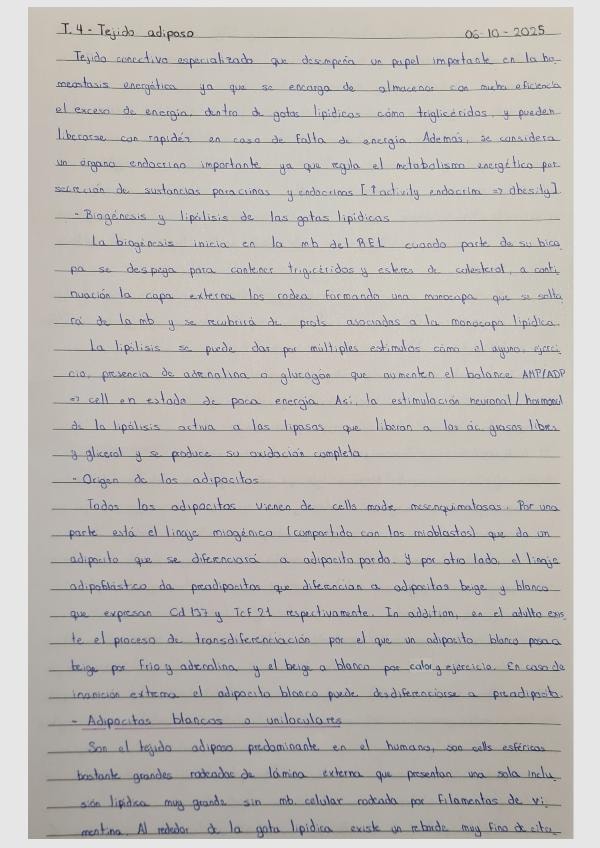 T.4 - Tejido adiposo 06-10-2025
Tejido conectivo especializado que desempeña un papel importante en la ho-
meostasis energética ya que se encarga de almacenar con mucha eficiencia
el exceso de energía, dentro de gotas lipídicas cómo triglicéridos, y pueden
liberarse con rapidéz en caso de falta de energía. Además, se considera
un órgano endocrino importante ya que regula el metabolismo energético por
secreción de sustancias paracrinas y endocrinas [↑activity endocrim => obesity].
- Biogénesis y lipólisis de las gotas lipídicas
La biogénesis inicia en la mb del REL cuando parte de su bica-
pa se despega para contener trigicéridos y esteres de colesterol, a conti-
nuación la capa externa los rodea formando una monocapa que se solta-
rá de la mb y se recubrirá de prots asociadas a la monocapa lipídica.
La lipólisis se puede dar por múltiples estímulos cómo el ayuno, ejerci-
cio, presencia de adrenalina o glucagón que aumenten el balance AMP/ADP
=> cell en estado de poca energía. Así, la estimulación neuronal/hormonal
de la lipólisis activa a las lipasas que liberan a los ác. grasos libres
y glicerol y se produce su oxidación completa
- Origen de los adipocitos
Todos los adipocitos vienen de cells madre mesenquimatosas. Por una
parte está el linaje miogénico (compartido con los mioblastos) que da un
adipocito que se diferenciará a adipocito pardo. Y por otro lado, el linaje
adipoblástico da preadipocitos que diferencian a adipocitos beige y blanco
que expresan Cd137 y Tcf21 respectivamente. In addition, en el adulto exis-
te el proceso de transdiferenciación por el que un adipocito blanco pasa a
beige por frío y adrenalina, y el beige a blanco por calor y ejercicio. En caso de
inanición extrema el adipocito blanco puede desdiferenciarse a preadipocito.
- Adipocitos blancos o uniloculares
Son el tejido adiposo predominante en el humano, son cells esféricas
bastante grandes rodeadas de lámina externa que presentan una sola inclu-
sión lipídica muy grande sin mb. celular rodeada por filamentos de vi-
mentina. Al rededor de la gota lipídica existe un reborde muy fino de cito-